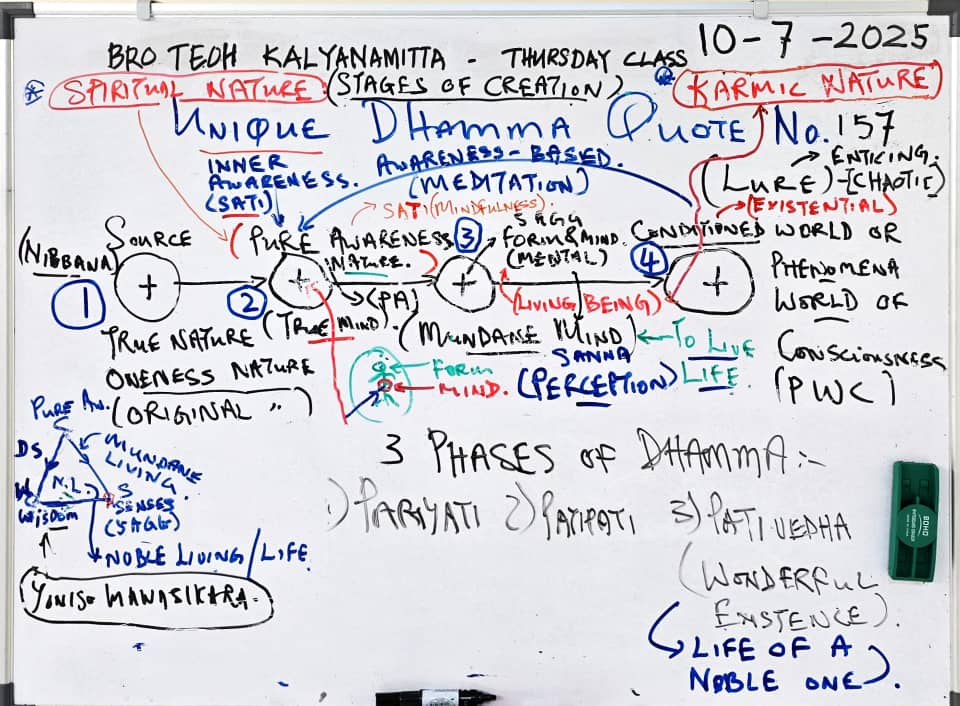 BRO TEOH KALYANAMITTA - THURSDAY CLASS
10-7-2025
SPIRITUAL NATURE. (STAGES OF CREATION)
KARMIC NATURE
UNIQUE DHAMMA QUOTE No. 157
INNER
AWARENESS.
(SATI)
AWARENESS-BASED.
(MEDITATION)
(LURE)-[CHAOTIC]
ENTICING.
(EXISTENTIAL)
SATI (MINDFULNESS).
SOURCE
(NIBBANA)
(PURE AWARENESS
NATURE.)
5 AGG
FORM & MIND.
(MENTAL)
CONDITIONED WORLD OR
PHENOMENA
WORLD OF
CONSCIOUSNESS
(PWC)
1
+
2
+
3
+
4
+
(PA)
(LIVING BEING)
TRUE NATURE
ONENESS NATURE
(ORIGINAL ")
(TRUE MIND).
(MUNDANE MIND)
TO LIVE
LIFE.
SANNA
(PERCEPTION)
FORM
MIND.
PURE AW.
C
DS
MUNDANE
LIVING.
N.L.
W
WISDOM
S
SENSES
(5AGG)
NOBLE LIVING/LIFE.
YONISO MANASIKARA.
3 PHASES OF DHAMMA:-
1) PARIYATI 2) PATIPATI 3) PATIVEDHA
(WONDERFUL
EXISTENCE).
LIFE OF A
NOBLE ONE.
BOHO